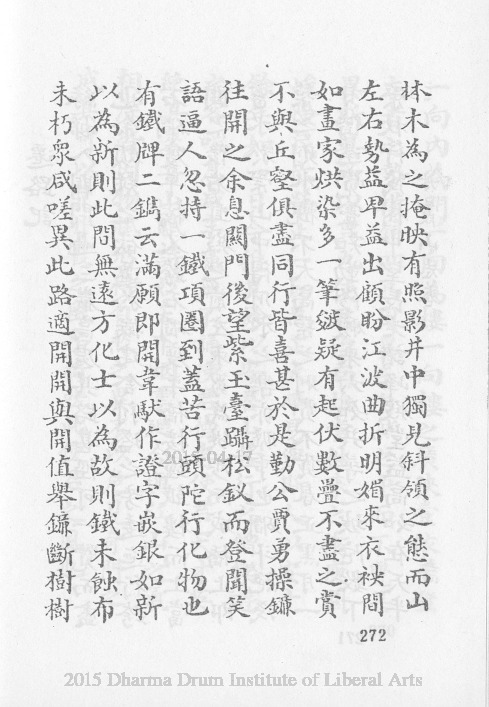 林木為之掩映有照影井中獨見斜領之態而山
左右勢益卑益出顧盼江波曲折明媚來衣袂間
如畫家烘染多一筆皴疑有起伏數疊不盡之賞
不與丘壑俱盡同行皆喜甚於是勤公賈勇操鐮
往開之余息闕門後望紫玉臺躡松釵而登聞笑
語逼人忽持一鐵項圈到蓋苦行頭陀行化物也
有鐵牌二鐫云滿願即開韋馱作證字嵌銀如新
以為新則此間無遠方化士以為故則鐵未蝕布
未朽眾咸嗟異此路適開開與開值舉鐮斷樹樹
272
2015-04-17
2015 Dharma Drum Institute of Liberal Arts